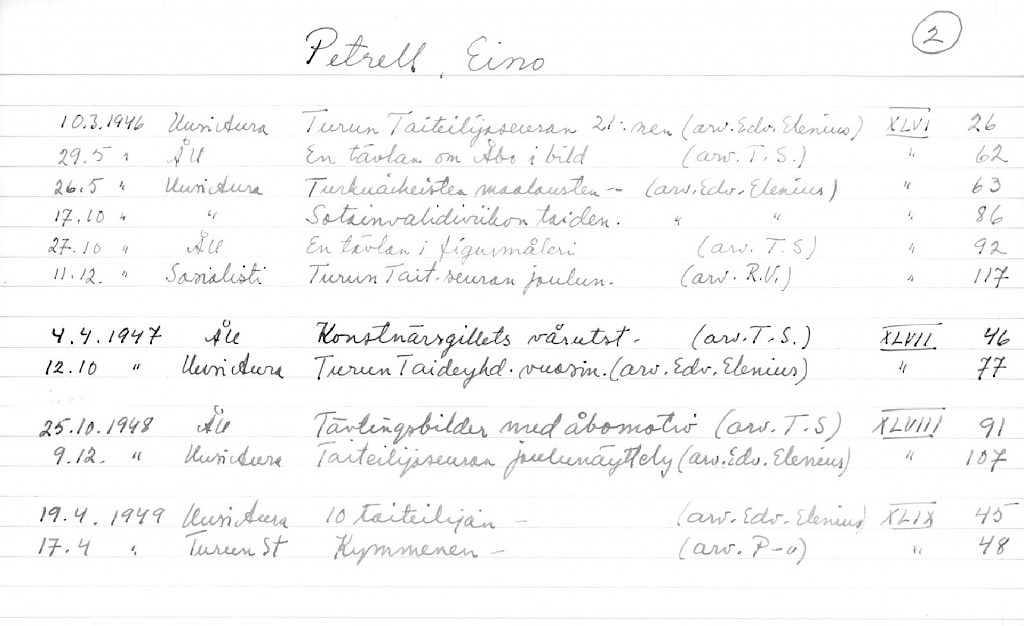 2
Petrell, Eino
10.3.1946 Uusi Aura Turun Taiteilijaseuran 21:nen (arv. Edv. Elenius) XLVI 26
29.5 " ÅU En tävlan om Åbo i bild (arv. T.S.) " 62
26.5 " Uusi Aura Turkuaiheisten maalausten - (arv. Edv. Elenius) " 63
17.10 " " Sotainvalidiviikon taiden. " " " 86
27.10 " ÅU En tävlan i figurmåleri (arv. T.S) " 92
11.12. " Sosialisti Turun Tait. seuran joulun. (arv. R.V.) " 117
4.4.1947 ÅU Konstnärsgillets vårutst - (arv. T.S.) XLVII 46
12.10 " Uusi Aura Turun Taideyhd. vuosin. (arv. Edv. Elenius) " 77
25.10.1948 ÅU Tävlingsbilder med åbomotiv (arv. T.S) XLVIII 91
9.12. " Uusi Aura Taiteilijaseuran joulunäyttely (arv. Edv. Elenius) " 107
19.4.1949 Uusi Aura 10 taiteilijan - (arv. Edv. Elenius) XLIX 45
17.4 " Turun St Kymmenen - (arv. P-o) " 48